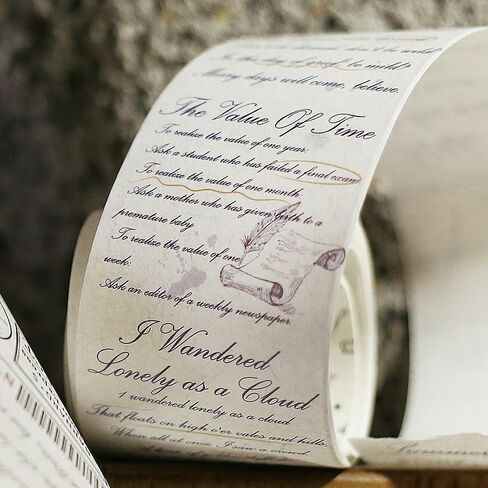 In the day of grief, be mild
Merry days will come, believe.
The Value Of Time
To realize the value of one year:
Ask a student who has failed a final exam
To realize the value of one month:
Ask a mother who has given birth to a
premature baby
To realize the value of one
week:
Ask an editor of a weekly newspaper.
I Wandered
Lonely as a Cloud
I wandered lonely as a cloud
That floats on high o'er vales and hills,
When all at once I saw a crowd